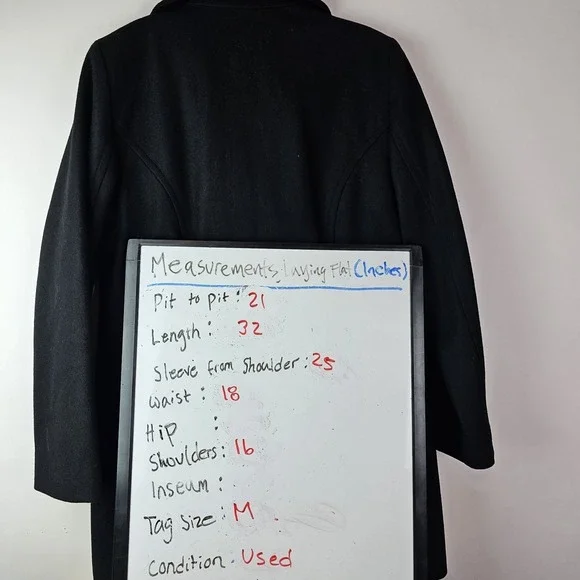 Measurements, Laying Flat (Inches)
Pit to pit: 21
Length: 32
Sleeve from Shoulder: 25
Waist: 18
Hip :
Shoulders: 16
Inseum :
Tag Size: M
Condition. Used